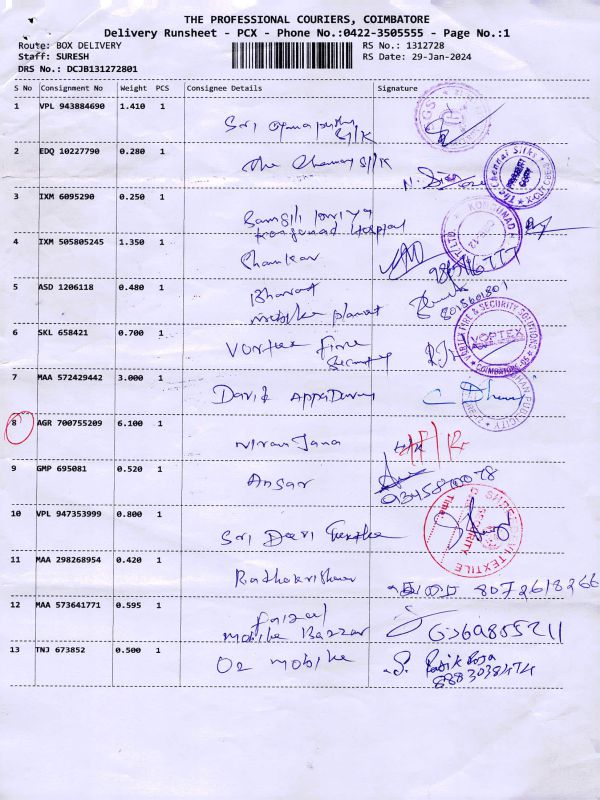 THE PROFESSIONAL COURIERS, COIMBATORE
Delivery Runsheet - PCX - Phone No.:0422-3505555 - Page No.:1
Route: BOX DELIVERY RS No.: 1312728
Staff: SURESH RS Date: 29-Jan-2024
DRS No.: DCJB131272801
S No Consignment No Weight PCS Consignee Details Signature
1 VPL 943884690 1.410 1
Sri silk
2 EDQ 10227790 0.280 1
The Chennai silk
The Chennai Silks
3 IXM 6095290 0.250 1
Hospital
4 IXM 505805245 1.350 1
5 ASD 1206118 0.480 1
Bharat 8015601801
mobike planet
6 SKL 658421 0.700 1
Vortex Fire
Security
VORTEX FIRE & SECURITY SOLUTIONS
VORTEX
7 MAA 572429442 3.000 1
David Appadurai
8 AGR 700755209 6.100 1
Niranjana
9 GMP 695081 0.520 1
Ansar
10 VPL 947353999 0.800 1
Sri Devi Textile
SECURITY
Time:
11 MAA 298268954 0.420 1
Radhakrishnan 8072618266
12 MAA 573641771 0.595 1
faizal
mobile Bazzar
13 TNJ 673852 0.500 1
O2 mobike
8883038474